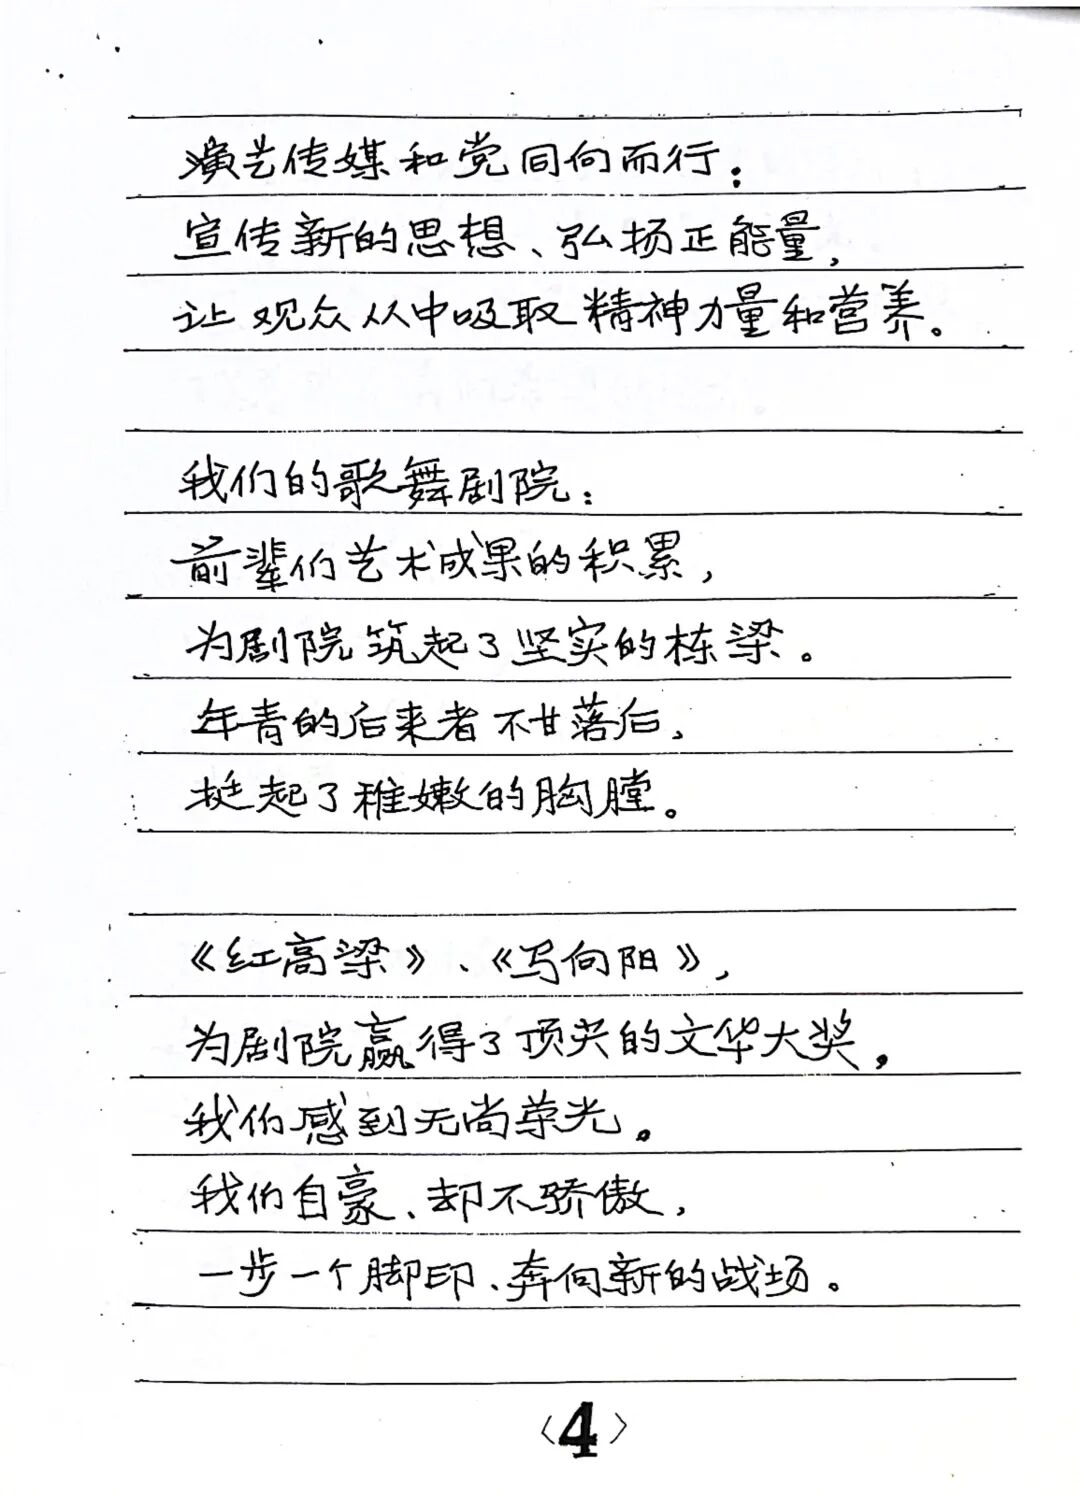 演艺传媒和党同向而行：
宣传新的思想、弘扬正能量，
让观众从中吸取精神力量和营养。
我们的歌舞剧院：
前辈们艺术成果的积累，
为剧院筑起了坚实的栋梁。
年青的后来者不甘落后，
挺起了稚嫩的胸膛。
《红高梁》、《写向阳》，
为剧院赢得了顶尖的文华大奖，
我们感到无尚荣光。
我们自豪、却不骄傲，
一步一个脚印、奔向新的战场。
〈4〉